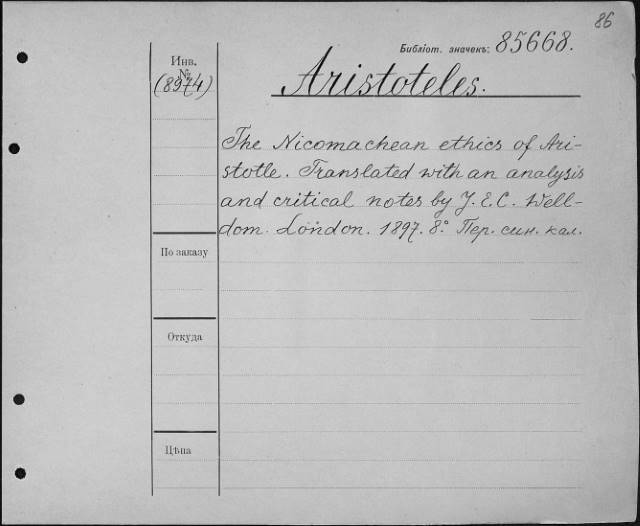 86
Библіот. значекъ: 85668.
Инв.
№
(8974)
Aristoteles.
The Nicomachean ethics of Ari-
stotle. Translated with an analysis
and critical notes by J. E. C. Well-
dom. London. 1897. 8.° Пер. син. кал.
По заказу
Откуда
Цѣна